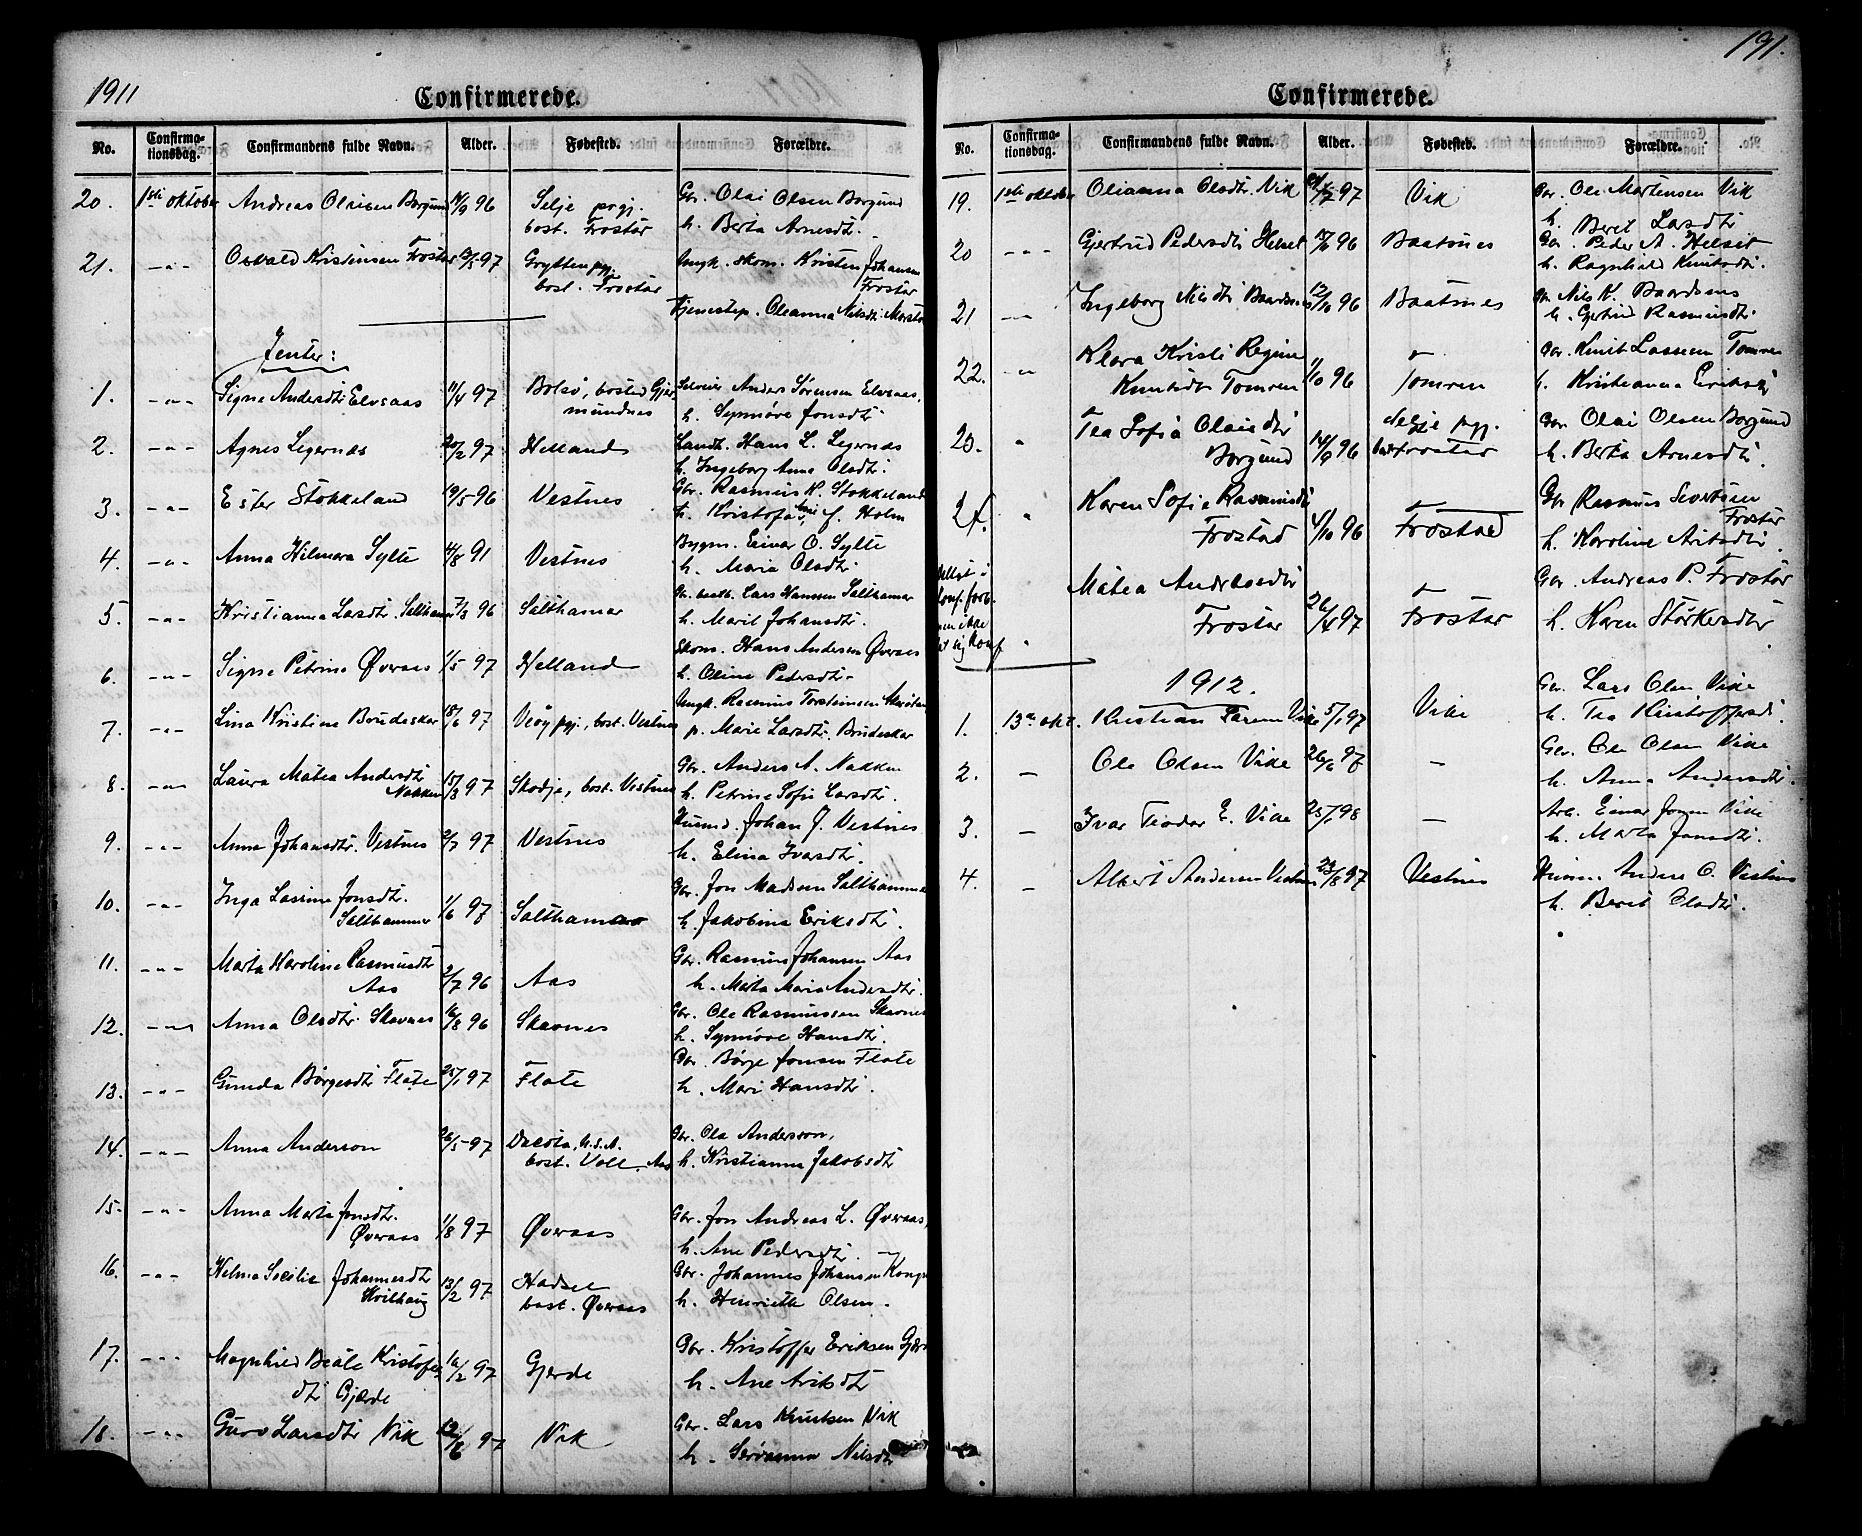 1911
Confirmerede.
No. Confirma-tionsdag. Confirmandens fulde Navn. Alder. Fødested. Forældre.
20. 1ste oktober Andreas Olaisen Borgund 14/9 96 Selje prgj. Gbr. Olai Olsen Borgund
bost. Frostar h. Berta Arnesdtr.
21. -"- Osvald Kristensen Frostar 97 Grytten pgj. Ungk. skom. Kristen Johansen
bost. Frostar Frostar
Tjenestep. Oleanna Nilsdtr.
Jenter:
1. -"- Signe Andersdtr Elvsaas 11/4 97 Bolsø, bosted Gjer- Anders Sørensen Elvsaas,
mundnes h. Synnøve Jonsdtr
2. -"- Agnes Legernes 20/2 97 Helland Landh. Hans L. Legernes
h. Ingeborg Anna Olsdtr.
3. -"- Ester Stokkeland 19/5 96 Vestnes Gbr. Rasmus K. Stokkeland
h. f. Holm
4. -"- Anna Hilmara Sylte 4/8 91 Vestnes Bygm. Einar O. Sylte
h. Maria Olsdtr.
5. -"- Kristianna Larsdtr. Salthamer 7/3 96 Salthamar Lars Hanssen Salthamar
h. Marit Johansdtr.
6. -"- Signe Petrine Øveraas 1/5 97 Helland Skom. Hans Andersen Øveraas
h. Oline Pedersdtr.
7. -"- Lina Kristine Brudeskar 18/6 97 Veøy pgj., bost. Vestnes Ungk. Rasmus Torsteinsen
p. Marie Larsdtr. Brudeskar
8. -"- Laura Matea Andersdtr 15/3 97 Skodje, bost. Vestnes Gbr. Anders A. Nakken
Nakken h. Petrine Sofie Larsdtr.
9. -"- Anna Johansdtr. Vestnes 2/7 97 Vestnes Husmd. Johan J. Vestnes
h. Elina Ivarsdtr.
10. -"- Inga Lassine Jonsdtr. 1/6 97 Salthammer Gbr. Jon Madsen Salthammer
Salthammer h. Jakobina Eriksdtr.
11. -"- Marta Karoline Rasmusdtr 2/7 96 Aas Gbr. Rasmus Johansen Aas
Aas h. Marta Maria Andersdtr.
12. -"- Anna Olsdtr. Skavnes 16/8 96 Skavnes Gbr. Ole Rasmussen Skavnes
h. Synnøve Hansdtr.
13. -"- Gunda Børgesdtr Flate 25/1 97 Flate Gbr. Børge Jonsen Flate
h. Mari Hansdtr.
14. -"- Anna Anderson 26/5 97 Dacota, U.S.A. Gbr. Ola Anderson,
bost. Voll, Aas h. Kristianna Jakobsdtr
15. -"- Anna Marta Jonsdtr. 1/8 97 Øveraas Gbr. Jon Andreas L. Øveraas,
Øveraas h. Ane Pedersdtr.
16. -"- Helma Secilie Johannesdtr 13/2 97 Hadsel Gbr. Johannes Johansen
Kvilhaug bost. Øveraas h. Henriette Olsen.
17. -"- Magnhild Beate Kristofers 16/2 97 Gjerde Gbr. Kristoffer Eriksen
dtr Gjærde h. Ane Ariksdtr
18. -"- Guro Larsdtr Vik 12/6 97 Vik Gbr. Lars Knutsen Vik
h. Nilsdtr
191.
Confirmerede.
No. Confirma-tionsdag. Confirmandens fulde Navn. Alder. Fødested. Forældre.
19. 1ste oktober Olianna Olsdtr. Vik 97 Vik Gbr. Ole Martinsen Vik
h. Berit Larsdtr
20 -"- Gjertrud Pedersdtr Helset 96 Baatnes Gbr. Peder A. Helset
h. Ragnhild Knutsdtr.
21 -"- Ingeborg Nilsdtr Baardsnes 12/10 96 Baatnes Gbr. Nils K. Baardsnes
h. Gjertrud Rasmusdtr.
22. " Klara Kristi Regine 11/10 96 Tomren Gbr. Knut Lassesen Tomren
Knutsdtr Tomren h. Kristianna Eriksdtr
23. " Tea Sofia Olaisdtr 14/9 96 Selje pgj. Gbr. Olai Olsen Borgund
Borgund bost Frostar h. Berta Arnesdtr.
24. " Karen Sofie Rasmusdtr 4/10 96 Frostad Gbr Rasmus Sivertsen
Frostad Frostar
h. Karoline Aritsdtr.
Matea Andreasdtr 26/4 97 Frostar Gbr. Andreas P. Frostar
Frostar h. Karen Størkersdtr
1912.
1. 13de okt. Kristian Larsen Vike 5/1 97 Vike Gbr. Lars Olsen Vike
h. Tea Kristoffersdtr.
2. – Ole Olsen Vike 26/6 97 – Gbr. Ole Olsen Vike
h. Anna Andersdtr.
3. – Ivar Teodor E. Vike 25/1 98 – Arb. Einar Jørgen Vike
h. Marta Jonsdtr.
4. – Albert Andersen Vestnes 23/8 97 Vestnes Anders O. Vestnes
h. Berit Olsdtr.